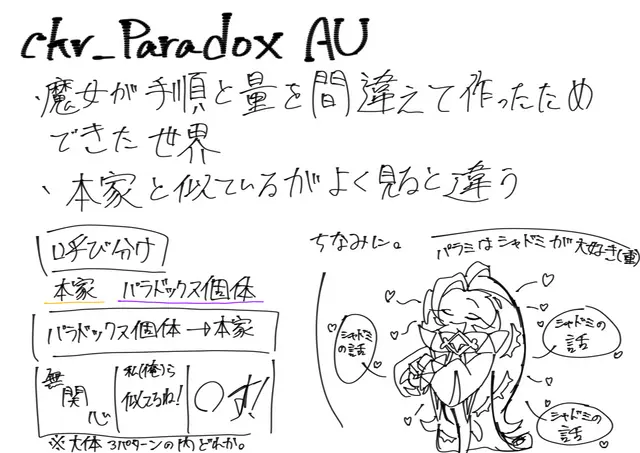 ckr_Paradox AU
・魔女が手順と量を間違えて作ったため
できた世界
・本家と似ているがよく見ると違う
呼び分け
本家 パラドックス個体
パラドックス個体→本家
無関心
私(俺)ら
似てるね!
〇す!
※大体3パターンの内どれか。
ちなみに。
パラミはシャドミが大好き(重)
シャドミ
の話
シャドミの
話
シャドミの
話